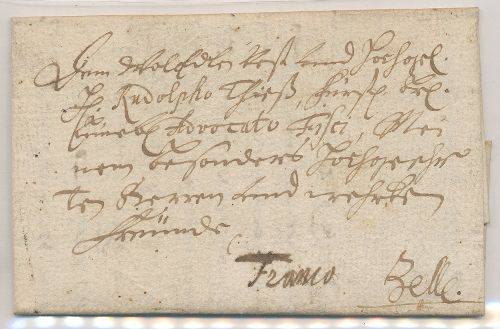 Dem WolEdlen Vest und Hochgel.
H. Rudolpho Thieß, Fürstl.
Advocato Fisci, Mei
nem besonders Hochgeehr
ten Herren und wehrten
Freunde
Franco Zelle.